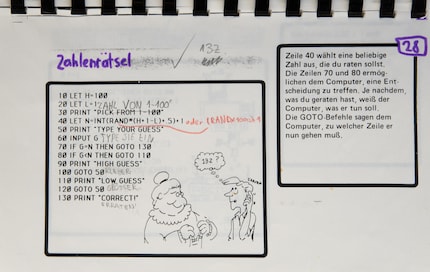 132
28
Zahlenrätsel
10 LET H=100
20 LET L=1
ZAHL VON 1-100"
30 PRINT "PICK FROM 1-100"
40 LET N=INT(RAND*(H+1-L)+.5)+1 oder
50 PRINT "TYPE YOUR GUESS"
60 INPUT G
70 IF G=N THEN GOTO 130
80 IF G<N THEN GOTO 110
90 PRINT "HIGH GUESS"
100 GOTO 50
110 PRINT "LOW GUESS"
120 GOTO 50
130 PRINT "CORRECT!"
ERRATEN
132 ?
Zeile 40 wählt eine beliebige
Zahl aus, die du raten sollst.
Die Zeilen 70 und 80 ermög-
lichen dem Computer, eine Ent-
scheidung zu treffen. Je nachdem,
was du geraten hast, weiß der
Computer, was er tun soll.
Die GOTO-Befehle sagen dem
Computer, zu welcher Zeile er
nun gehen muß.